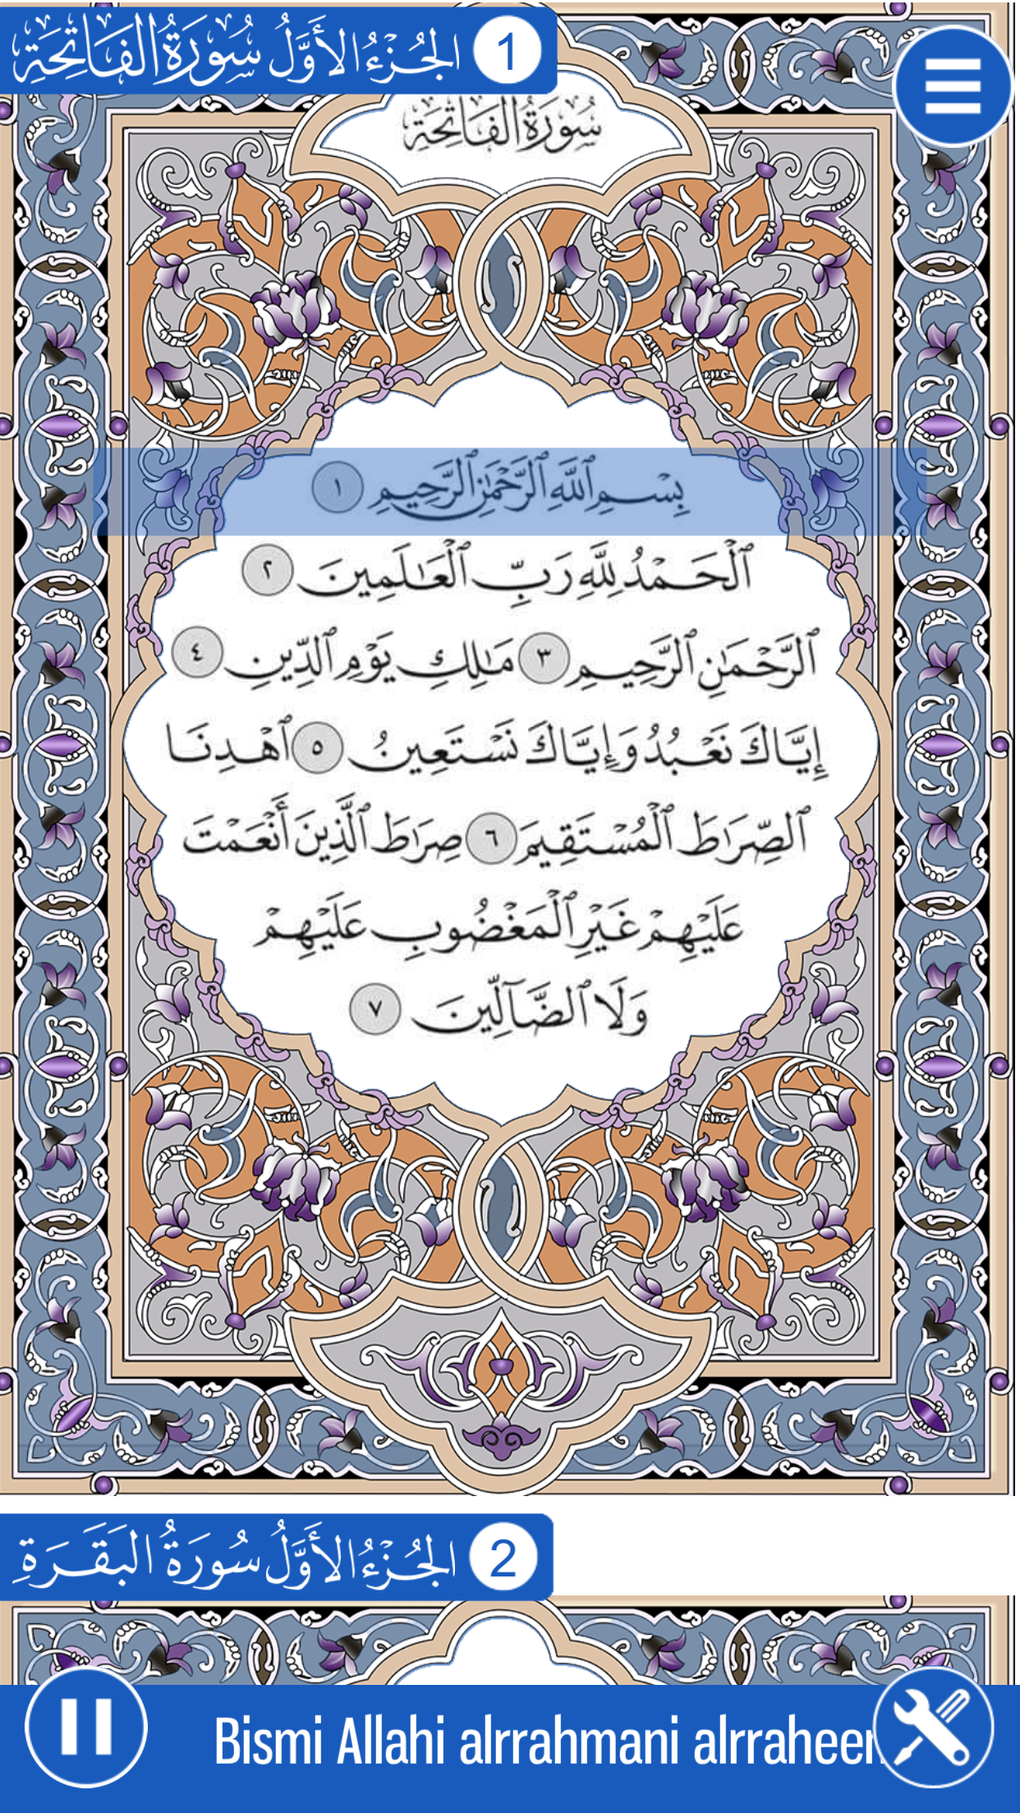 الجُزْءُ الأَوَّلُ سُورَةُ الفَاتِحَةِ 1
سُورَةُ الفَاتِحَةِ
بِسْمِ ٱللَّهِ ٱلرَّحْمَٰنِ ٱلرَّحِيمِ ١
ٱلْحَمْدُ لِلَّهِ رَبِّ ٱلْعَٰلَمِينَ ٢
ٱلرَّحْمَٰنِ ٱلرَّحِيمِ ٣ مَٰلِكِ يَوْمِ ٱلدِّينِ ٤
إِيَّاكَ نَعْبُدُ وَإِيَّاكَ نَسْتَعِينُ ٥ ٱهْدِنَا
ٱلصِّرَٰطَ ٱلْمُسْتَقِيمَ ٦ صِرَٰطَ ٱلَّذِينَ أَنْعَمْتَ
عَلَيْهِمْ غَيْرِ ٱلْمَغْضُوبِ عَلَيْهِمْ
وَلَا ٱلضَّآلِّينَ ٧
الجُزْءُ الأَوَّلُ سُورَةُ البَقَرَةِ 2
Bismi Allahi alrrahmani alrraheer